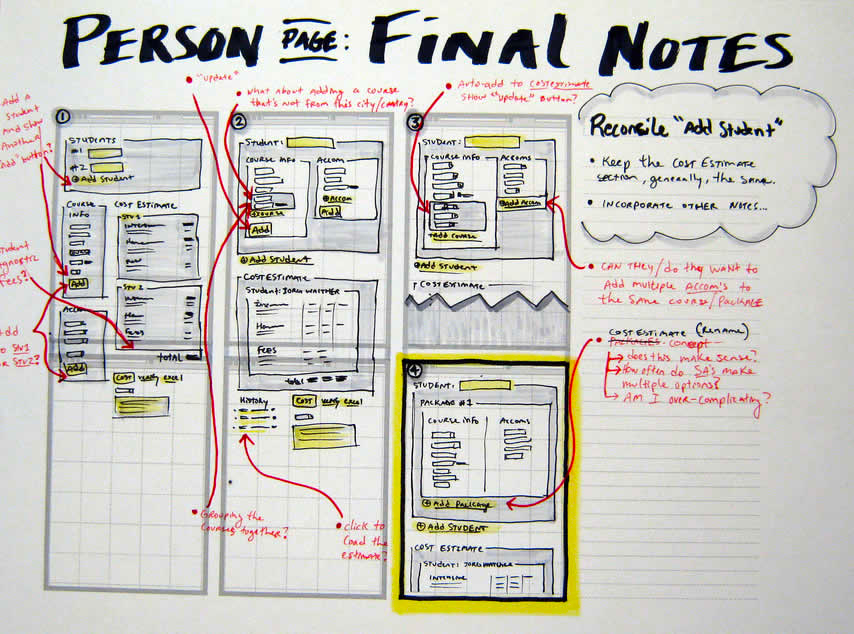 PERSON PAGE: FINAL NOTES
"update"
what about adding a course
that's not from this city/
Auto-add to COST ESTIMATE
show "update" Button?
Add a
student
And show
Another
"Add" button?
1
STUDENTS
#1
#2
+ Add Student
COURSE
INFO
Add
COST ESTIMATE
STU 1
STU 2
Fees
TOTAL
Add
COST
excel
Student
Diagnostic
Fees?
Add
to STU1
or STU2?
2
STUDENT:
COURSE INFO
ACCOM
+ COURSE
Add
+ ACCOM
Add
+ Add STUDENT
COST ESTIMATE
Student:
FEES
total
History
COST
excel
Grouping the
courses together?
click to
load the
estimate?
3
STUDENT:
COURSE INFO
ACCOMS
+ Add Accom
+ Add COURSE
+ Add STUDENT
COST ESTIMATE
4
STUDENT:
PACKAGE #1
COURSE INFO
ACCOMS
+ Add PACKAGE
+ Add STUDENT
COST ESTIMATE
STUDENT:
INTENSIVE
Reconcile "Add Student"
• Keep the COST ESTIMATE
section, generally, the same.
• INCORPORATE OTHER NOTES...
CAN THEY/do they WANT to
Add multiple ACCOM'S to
the same course/PACKAGE
COST ESTIMATE (RENAME)
PACKAGES concept
does this make sense?
How often do SA's make
multiple options?
Am I over-complicating?